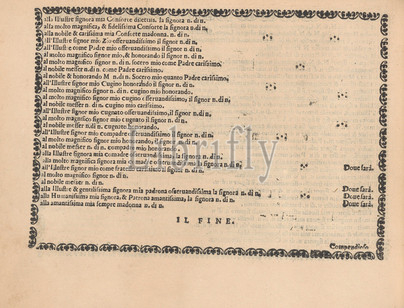 alla Illustre signora mia Consorte diletta. la signora n. di n.
alla molto magnifica, & fidelissima Consorte la signora n. di n.
alla nobile & carissima mia Consorte madonna. n. di n.
all'Illustre signor mio Zio osseruandissimo il signor n. di n.
all'Illustre come Padre mio osseruandissimo il signor n. di n.
al molto magnifico signor mio honorando. il signor n. di n.
al molto magnifico signor n. di n. socero mio come Padre carissimo.
al nobile messer n. di n. come Padre carissimo.
al nobile & honorando M n. di n. Socero mio quanto Padre carissimo,
all'Illustre signor mio Cugino honorando il signor n. di n.
al molto magnifico signor mio cugino carissimo.
al molto magnifico signor mio cugino osseruandissimo, il signor n. di n.
al nobile messer n. di n. Cugino mio carissimo.
all'Illustre signor mio cugnato osseruandissimo. il signor n. di n.
al molto magnifico signor mio cugnato il signor n. di n.
al nobile messer n. di n. cugnato mio carissimo.
al nobile mio ser n. di n. cugnato honorando.
all'Illustre signor mio compadre osseruandissimo il signor n. di n.
al molto magnifico signor mio honorando, il signor n. di n.
al nobile messer n. di n. compadre mio honorando.
alla Illustre signora mia comadre
alla molto magnifica signora mia
all'Illustre signor mio come fratello carissimo il signor Doue sarà.
al molto magnifico signor n. di n.
al nobile messer n. di n.
alla Illustre & gentilissima signora mia padrona osseruandissima la signora n. di n, Doue sarà.
alla Humanissima mia signora, & Patrona amantissima, la signora n. di n. Doue sarà.
alla amantissima mia sempre madonna n. di n. Doue sarà.
IL FINE.
Compendiolo
Librifly